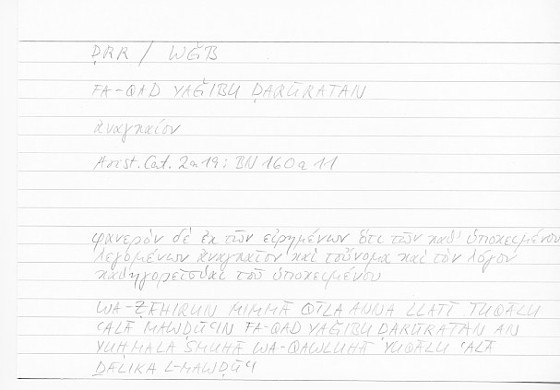 ḌRR / WǦB
FA-QAD YAǦIBU ḌARŪRATAN
ἀναγκαῖον
Arist. Cat. 2a19: BN 160a11
φανερὸν δὲ ἐκ τῶν εἰρημένων ὅτι τῶν καθ' ὑποκειμένου
λεγομένων ἀναγκαῖον καὶ τοὔνομα καὶ τὸν λόγον
κατηγορεῖσθαι τοῦ ὑποκειμένου
WA-ẒĀHIRUN MIMMĀ QĪLA ANNA LLATĪ TUQĀLU
ʿALĀ MAWḌŪʿIN FA-QAD YAǦIBU ḌARŪRATAN AN
YUḤMALA SMUHĀ WA-QAWLUHĀ YUQĀLU ʿALĀ
ḎĀLIKA L-MAWḌŪʿI